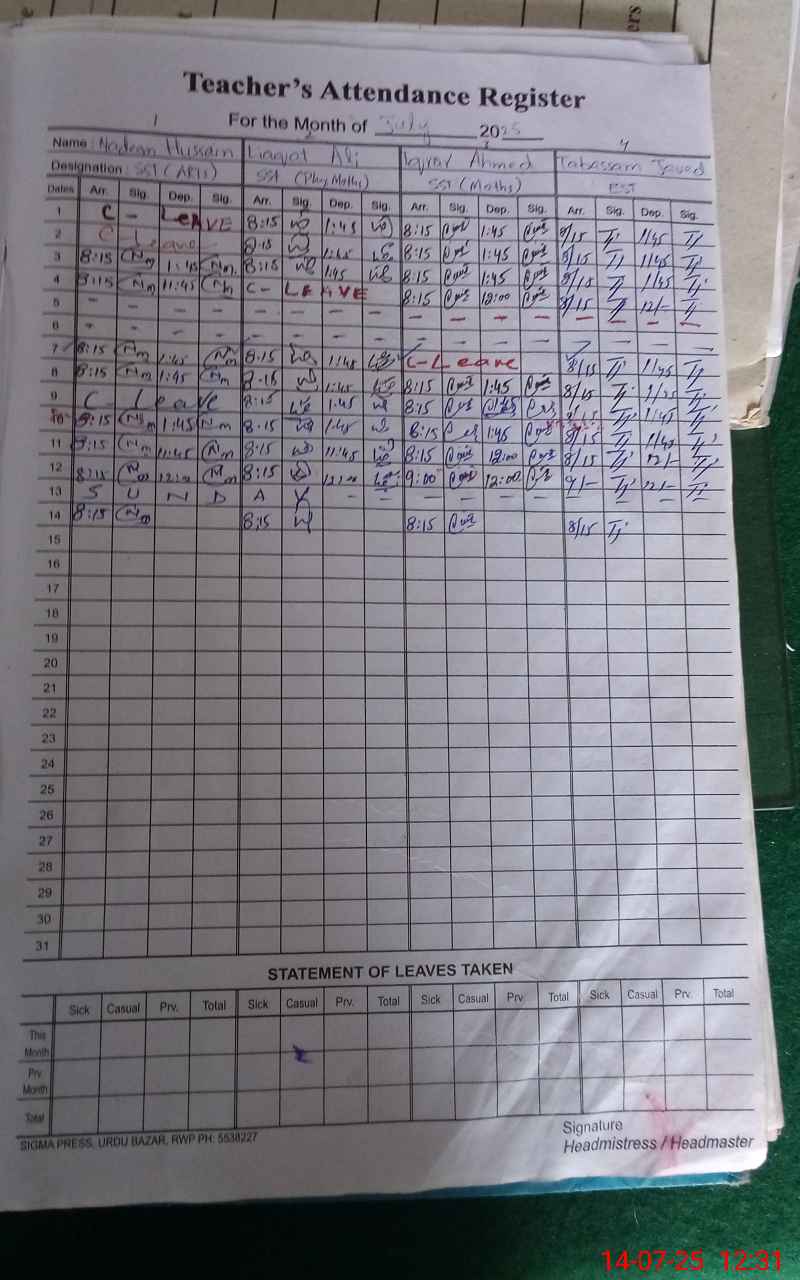 ers
Teacher's Attendance Register
1 For the Month of July 2025 3 4
Name: Nadeem Hussain Liaqat Ali Iqrar Ahmed Tabassam Javed
Designation: SST (ARTS) SST (Phy, Maths) SST (Maths) EST
Dates Arr. Sig. Dep. Sig. Arr. Sig. Dep. Sig. Arr. Sig. Dep. Sig. Arr. Sig. Dep. Sig.
1 C - LEAVE 8:15 1:45 8:15 1:45 8/15 Tj 1/45 Tj
2 C Leave 8:15 1:45 8:15 1:45 8/15 Tj 1/45 Tj
3 8:15 Nm 1:45 Nm 8:15 1:45 8:15 1:45 8/15 Tj 1/45 Tj
4 8:15 Nm 11:45 Nm C- LEAVE 8:15 12:00 8/15 Tj 12/- Tj
5 - - - - - - - - - - - - - - - -
6 - - - - - - - - - - - - - - - -
7 8:15 Nm 1:45 Nm 8:15 1:45 C-Leave 8/15 Tj 1/45 Tj
8 8:15 Nm 1:45 Nm 8:15 1:45 8:15 1:45 8/15 Tj Tj
9 C - Leave 8:15 1:45 8:15 1:45 Tj 1/45 Tj
10 8:15 Nm 1:45 Nm 8:15 1:45 8:15 1:45 8/15 Tj 1/45 Tj
11 8:15 Nm 11:45 Nm 8:15 11:45 8:15 12:00 8/15 Tj 12/- Tj
12 8:15 Nm 12:00 Nm 8:15 12:00 9:00 12:00 9/- Tj 12/- Tj
13 S U N D A Y - - - - - - - - - -
14 8:15 Nm 8:15 8:15 8/15 Tj
15
16
17
18
19
20
21
22
23
24
25
26
27
28
29
30
31
STATEMENT OF LEAVES TAKEN
Sick Casual Prv. Total Sick Casual Prv. Total Sick Casual Prv. Total Sick Casual Prv. Total
This Month
Prv. Month
Total
SIGMA PRESS, URDU BAZAR, RWP PH: 5530227
Signature
Headmistress / Headmaster
14-07-25 12:31